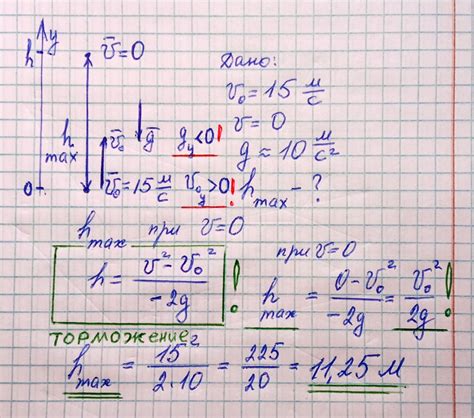 y
h v̄=0
Дано:
v₀=15 м/с
v=0
g≈10 м/с²
h max - ?
h max
v̄₀ ḡ g_y<0!
0 v̄₀=15 м/с v₀y>0!
h max при v=0
h = (v²-v₀²)/(-2g) !
при v=0
h max = (0-v₀²)/(-2g) = v₀²/(2g) !
торможение
h max = 15²/(2·10) = 225/20 = 11,25 м